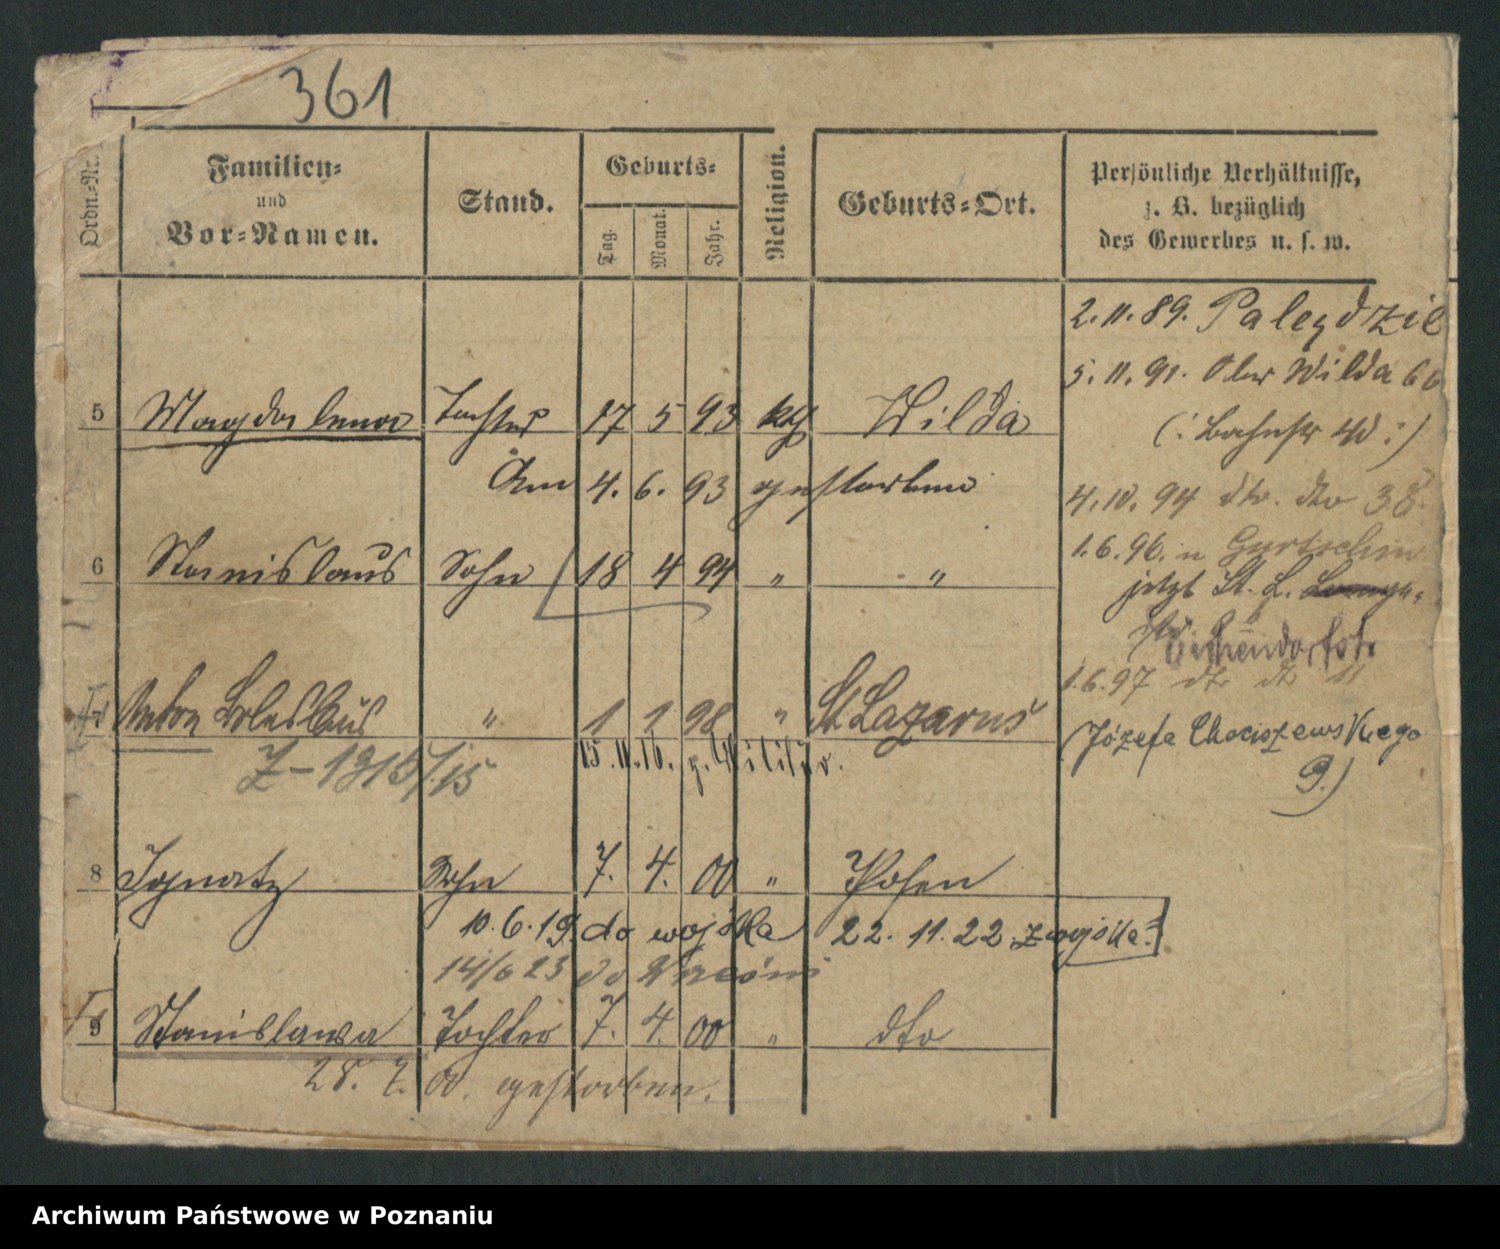 361
Ordn.-Nr.
Familien-
und
Vor-Namen.
Stand.
Geburts-
Tag.
Monat.
Jahr.
Religion.
Geburts-Ort.
Persönliche Verhältnisse,
z. B. bezüglich
des Gewerbes u. s. w.
2. 11. 89. Palędzie
5. 11. 91. Ober Wilda 6
5 Magdalena Tochter 17 5 93 kth Wilda
(: Bahnstr 40 :)
Am 4. 6. 93 gestorben
4. 10. 94 dto. dto 38.
6 Stanislaus Sohn 18 4 94 " "
1. 6. 96. n Gurtschin
jetzt St. L.
1. 6. 97 dto dto 11
7 Anton Boleslaus " 1 1 98 " St Lazarus
(Józefa Chociszewskiego
9.)
Z-1915/15 15. 11. 16. z. Militär.
8 Ignatz Sohn 7. 4. 00 " Posen
10. 6. 19. do wojska 22. 11. 22. z wojska.
14/6 23 do
9 Stanislawa Tochter 7. 4. 00 " dto
28. 7. 00. gestorben.
Archiwum Państwowe w Poznaniu